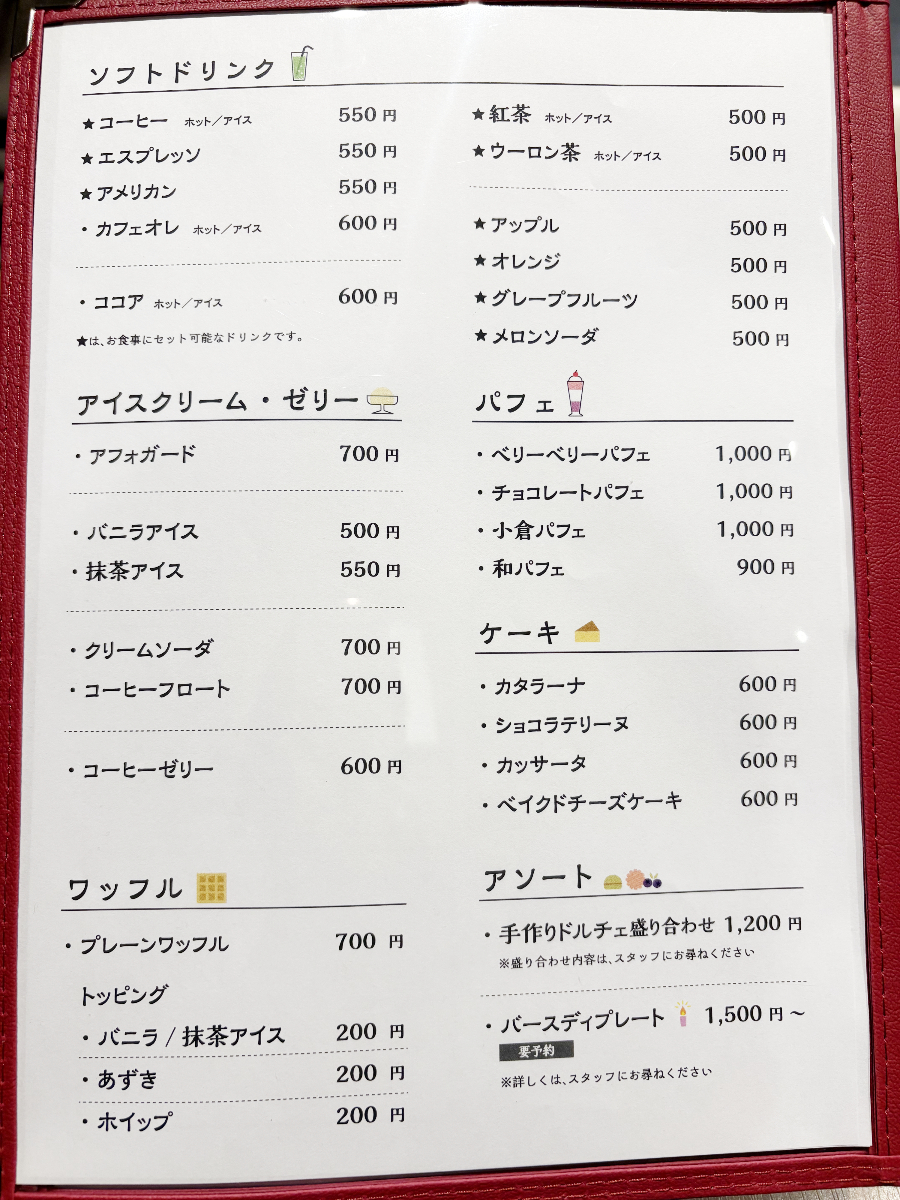 ソフトドリンク
★コーヒー ホット／アイス 550 円
★エスプレッソ 550 円
★アメリカン 550 円
・カフェオレ ホット／アイス 600 円
・ココア ホット／アイス 600 円
★は、お食事にセット可能なドリンクです。
★紅茶 ホット／アイス 500 円
★ウーロン茶 ホット／アイス 500 円
★アップル 500 円
★オレンジ 500 円
★グレープフルーツ 500 円
★メロンソーダ 500 円
アイスクリーム・ゼリー
・アフォガード 700 円
・バニラアイス 500 円
・抹茶アイス 550 円
・クリームソーダ 700 円
・コーヒーフロート 700 円
・コーヒーゼリー 600 円
パフェ
・ベリーベリーパフェ 1,000 円
・チョコレートパフェ 1,000 円
・小倉パフェ 1,000 円
・和パフェ 900 円
ケーキ
・カタラーナ 600 円
・ショコラテリーヌ 600 円
・カッサータ 600 円
・ベイクドチーズケーキ 600 円
ワッフル
・プレーンワッフル 700 円
トッピング
・バニラ / 抹茶アイス 200 円
・あずき 200 円
・ホイップ 200 円
アソート
・手作りドルチェ盛り合わせ 1,200 円
※盛り合わせ内容は、スタッフにお尋ねください
・バースディプレート 1,500 円 ～
要予約
※詳しくは、スタッフにお尋ねください